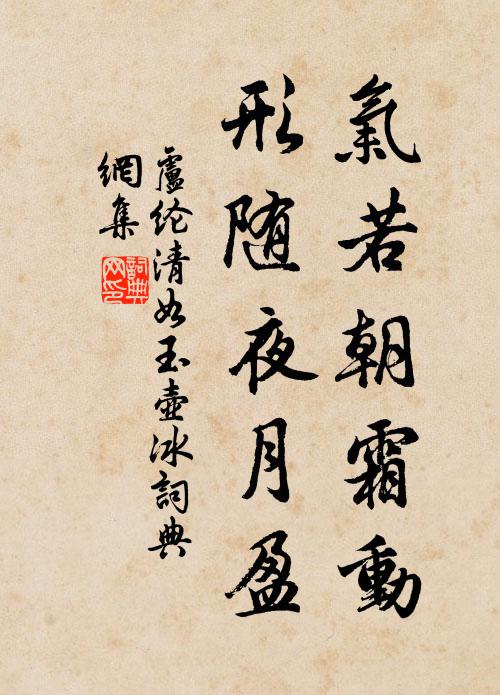 氣若朝霜動
形随夜月盈
盧纶清如玉壺冰詞典
網集
詞典
网印